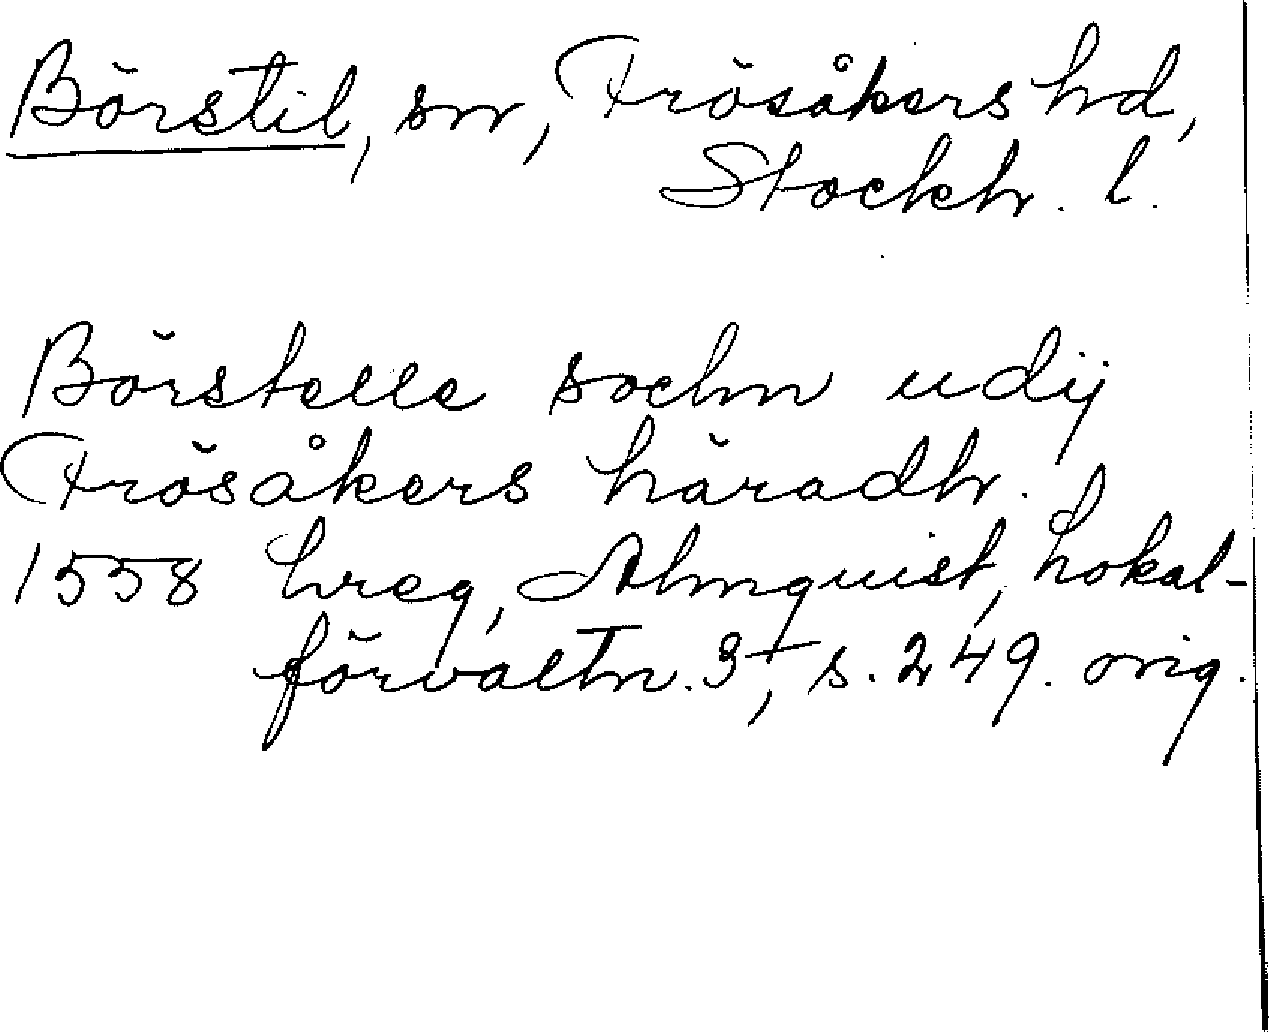 Börstil, sn, Frösåkers hd,
Stockh. l.
Börstelle sochn udij
Frösåkers häradh.
1558 Lreg, Almquist, Lokal-
förvaltn. 3, s. 249. orig.